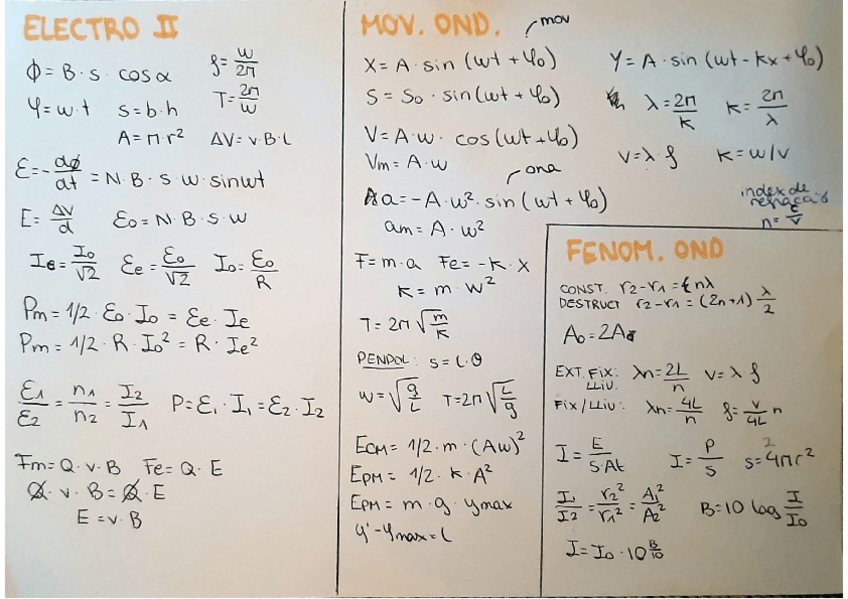 ELECTRO II
ϕ = B · s · cos α    f = w/2π
φ = w · t    s = b · h    T = 2π/w
A = π · r²    ΔV = v · B · L
ℰ = - dϕ/dt = N · B · s · w · sin wt
E = ΔV/d    ℰo = N · B · s · w
Ie = Io/√2    ℰe = ℰo/√2    Io = ℰo/R
Pm = 1/2 · ℰo · Io = ℰe · Ie
Pm = 1/2 · R · Io² = R · Ie²
ℰ1/ℰ2 = n1/n2 = I2/I1    P = ℰ1 · I1 = ℰ2 · I2
Fm = Q · v · B    Fe = Q · E
Q · v · B = Q · E
E = v · B
MOV. OND.
mov
X = A · sin (wt + φo)    Y = A · sin (wt - kx + φo)
S = So · sin (wt + φo)    λ = 2π/k    k = 2π/λ
V = A · w · cos (wt + φo)    v = λ · f    k = w/v
Vm = A · w
ona
a = -A · w² · sin (wt + φo)
am = A · w²
index de
refracció
n = c/v
F = m · a    Fe = -k · x
k = m · w²
T = 2π √(m/k)
PENDOL: s = L · θ
w = √(g/L)    T = 2π √(L/g)
ECM = 1/2 · m · (Aw)²
EPM = 1/2 · k · A²
EPM = m · g · ymax
y' - ymax = L
FENOM. OND
CONST. r2 - r1 = nλ
DESTRUCT r2 - r1 = (2n+1) λ/2
Ao = 2A
EXT. FIX:    λn = 2L/n    v = λ f
LLIU.
FIX/LLIU:    λn = 4L/n    f = v/4L n
I = E/S·Δt    I = P/S    s = 4πr²
I1/I2 = r2²/r1² = A1²/A2²    B = 10 log I/Io
I = Io · 10^(B/10)